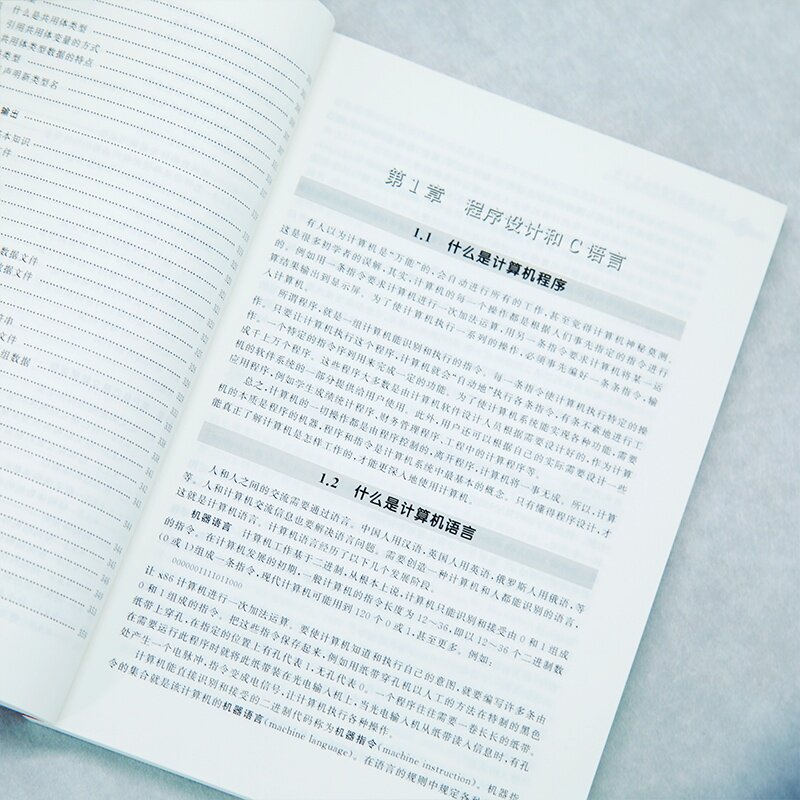 什么是共用体类型
引用共用体变量的方式
共用体类型数据的特点
类型
声明新类型名
输出
基本知识
文件
数据文件
数据文件
符串
文件
组数据
第1章 程序设计和C语言
1.1 什么是计算机程序
有人以为计算机是“万能”的,会自动进行所有的工作,甚至觉得计算机神秘莫测。
这是很多初学者的误解,其实,计算机的每一个操作都是根据人们事先指定的指令进行
的。例如用一条指令要求计算机进行一次加法运算,用另一条指令要求计算机将某一运
算结果输出到显示屏。为了使计算机执行一系列的操作,必须事先编好一条条指令,输
入计算机。
所谓程序,就是一组计算机能识别和执行的指令。每一条指令使计算机执行特定的操
作。只要让计算机执行这个程序,计算机就会“自动地”执行各条指令,有条不紊地进行工
作。一个特定的指令序列用来完成一定的功能。为了使计算机系统能实现各种功能,需要
成千上万个程序。这些程序大多数是由计算机软件设计人员根据需要设计好的,作为计算
机的软件系统的一部分提供给用户使用。此外,用户还可以根据自己的实际需要设计一些
应用程序,例如学生成绩统计程序、财务管理程序、工程中的计算程序等。
总之,计算机的一切操作都是由程序控制的,离开程序,计算机将一事无成。所以,计算
机的本质是程序的机器,程序和指令是计算机系统中最基本的概念。只有懂得程序设计,才
能真正了解计算机是怎样工作的,才能更深入地使用计算机。
1.2 什么是计算机语言
人和人之间的交流需要通过语言。中国人用汉语,英国人用英语,俄罗斯人用俄语,等
等。人和计算机交流信息也要解决语言问题。需要创造一种计算机和人都能识别的语言,
这就是计算机语言。计算机语言经历了以下几个发展阶段。
机器语言 计算机工作基于二进制,从根本上说,计算机只能识别和接受由0和1组成
的指令。在计算机发展的初期,一般计算机的指令长度为12~36,即以12~36个二进制数
(0或1)组成一条指令,现代计算机可能用到120个0或1,甚至更多。例如:
0000001111011000
让x86计算机进行一次加法运算。要使计算机知道和执行自己的意图,就要编写许多条由
0和1组成的指令。把这些指令保存起来,例如用纸带穿孔机以人工的方法在特制的黑色
纸带上穿孔,在指定的位置上有孔代表1,无孔代表0。一个程序往往需要一卷长长的纸带。
在需要运行此程序时就将此纸带装在光电输入机上,当光电输入机从纸带读入信息时,有孔
处产生一个电脉冲,指令变成电信号,让计算机执行各种操作。
计算机能直接识别和接受的二进制代码称为机器指令(machine instruction)。机器指
令的集合就是该计算机的机器语言(machine language)。在语言的规则中规定各种